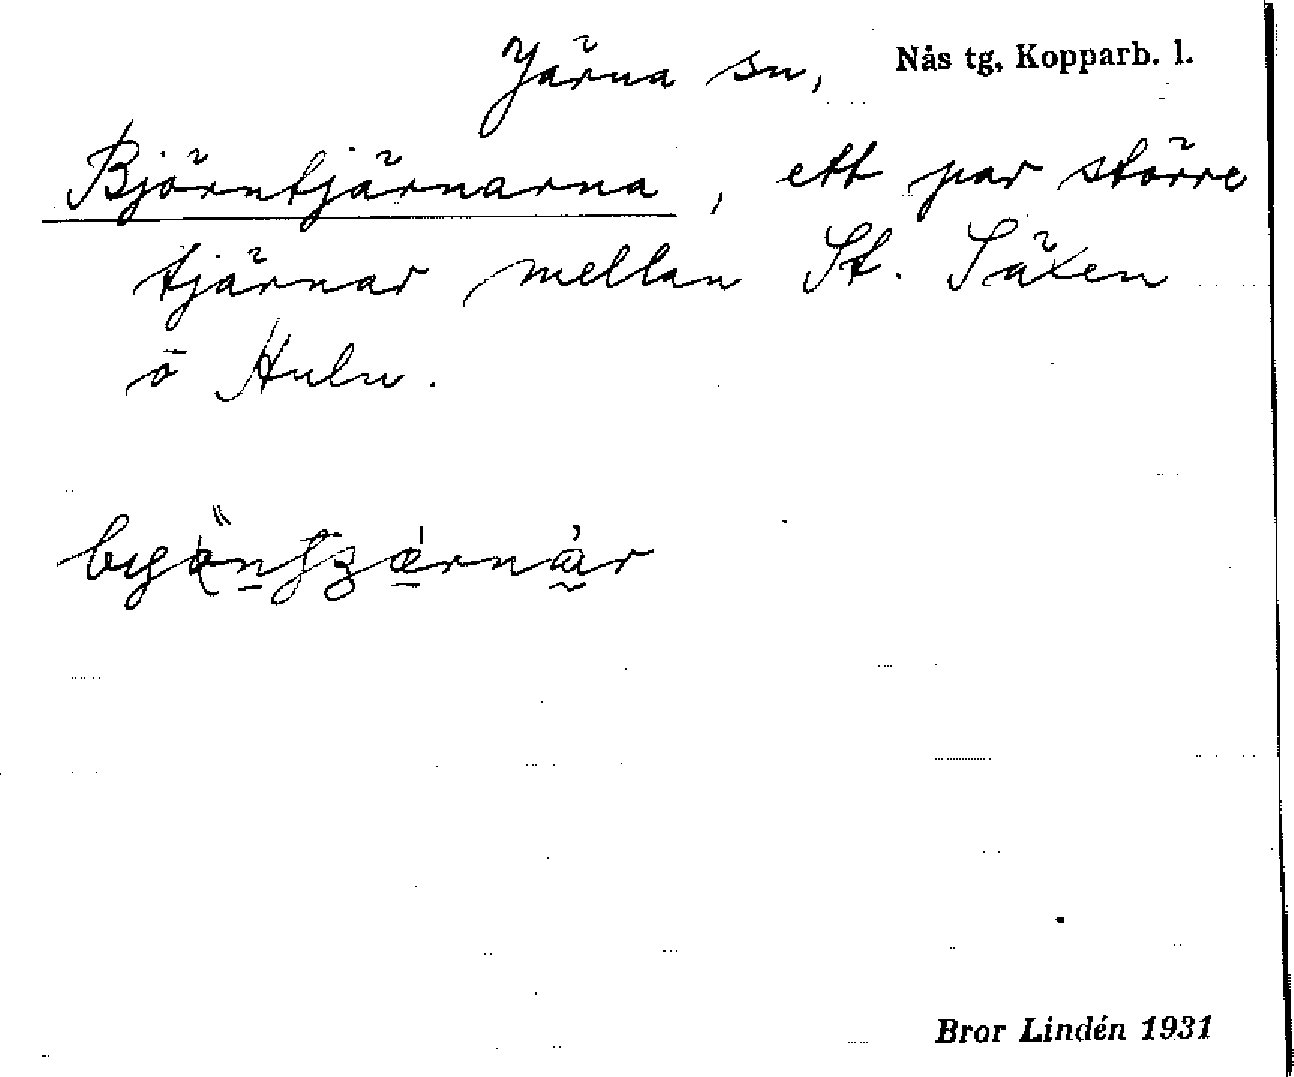 Järna sn, Nås tg, Kopparb. l.
Björntjärnarna, ett par större
tjärnar mellan St. Säxen
o Huln.
Bror Lindén 1931